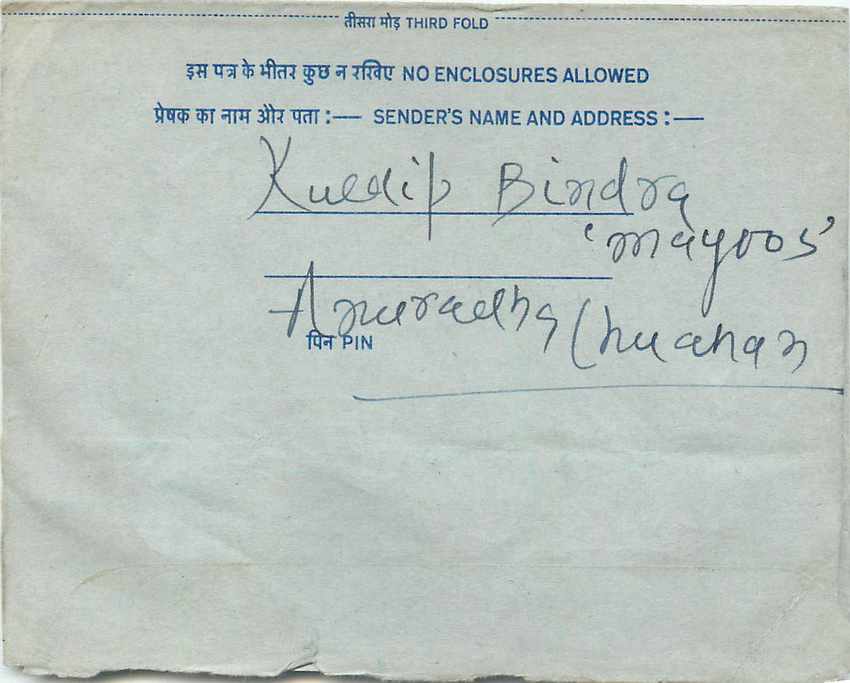 तीसरा मोड़ THIRD FOLD
इस पत्र के भीतर कुछ न रखिए NO ENCLOSURES ALLOWED
प्रेषक का नाम और पता :— SENDER'S NAME AND ADDRESS :—
Kuldip Bindra
'mayoos'
Anuradha Chuahan
पिन PIN